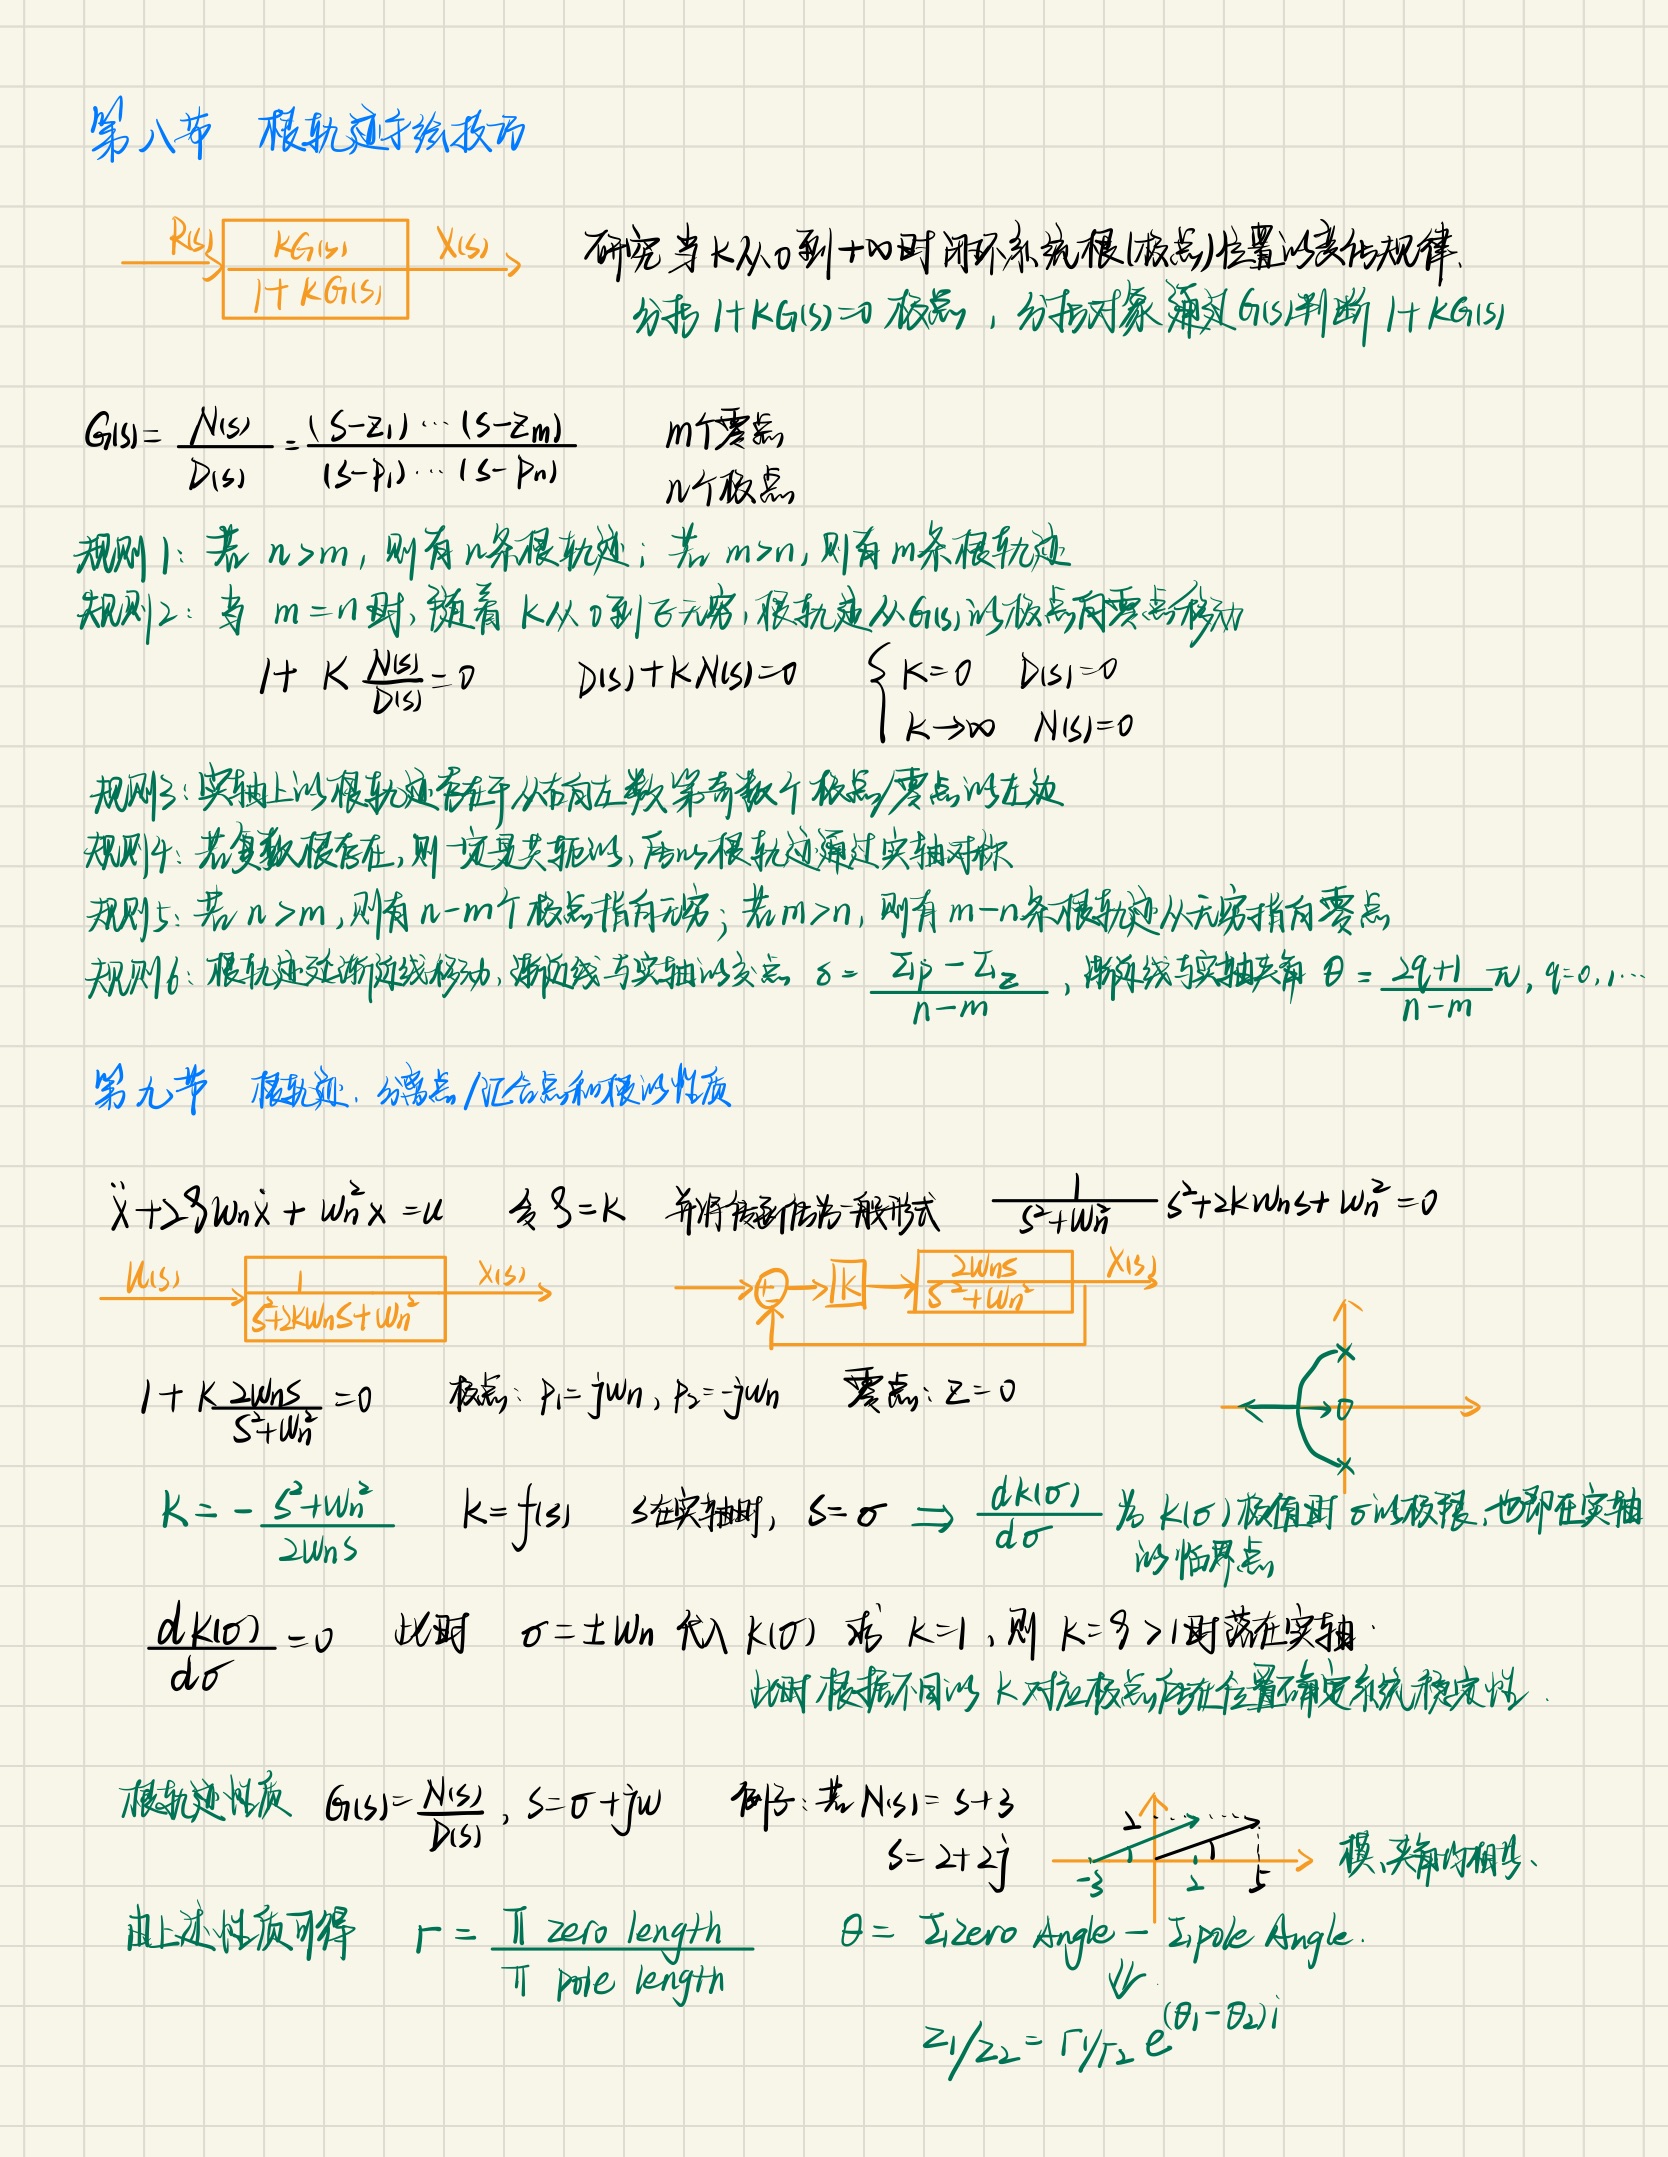 第八节 根轨迹手绘技巧
R(s) KG(s) / 1+KG(s) X(s)
研究当K从0到+∞时闭环系统根(极点)位置的变化规律.
分析 1+KG(s)=0 极点, 分析对象 通过G(s)判断 1+KG(s)
G(s) = N(s)/D(s) = (s-z₁)…(s-zₘ) / (s-p₁)…(s-pₙ)
m个零点
n个极点
规则1: 若 n>m, 则有n条根轨迹; 若 m>n, 则有m条根轨迹
规则2: 当 m=n时, 随着 K从0到正无穷, 根轨迹从G(s)的极点向零点移动
1+ K N(s)/D(s) = 0 D(s)+KN(s)=0 { K=0 D(s)=0
K→∞ N(s)=0
规则3: 实轴上的根轨迹存在于从右向左数第奇数个极点/零点的左边
规则4: 若复数根存在, 则一定是共轭的, 所以根轨迹通过实轴对称
规则5: 若 n>m, 则有 n-m个极点指向无穷; 若m>n, 则有 m-n条根轨迹从无穷指向零点
规则6: 根轨迹沿渐近线移动, 渐近线与实轴的交点 δ = (Σp - Σz)/(n-m), 渐近线与实轴夹角 θ = (2q+1)/(n-m) π, q=0,1…
第九节 根轨迹: 分离点/汇合点和根的性质
ẍ+2ζωₙẋ+ωₙ²x=u 令 ζ=K 并将传函化为一般形式 1/(s²+ωₙ²) s²+2Kωₙs+ωₙ²=0
U(s) 1/(s²+2Kωₙs+ωₙ²) X(s)
+ - K 2ωₙs/(s²+ωₙ²) X(s)
1+K 2ωₙs/(s²+ωₙ²) = 0 极点: p₁=jωₙ, p₂=-jωₙ 零点: z=0
K = - (s²+ωₙ²)/(2ωₙs) K=f(s) s在实轴时, s=σ ⇒ dK(σ)/dσ 为 K(σ)极值时 σ的极限, 也即在实轴
的临界点
dK(σ)/dσ = 0 此时 σ=±ωₙ 代入 K(σ) 求 K=1, 则 K=ζ>1时落在实轴.
此时根据不同的 K对应极点所在位置确定系统稳定性.
根轨迹性质 G(s)=N(s)/D(s), s=σ+jω 例子: 若 N(s)=s+3
s=2+2j
2 -3 2 5
模、夹角均相等、
由上述性质可得 r = Π zero length / Π pole length θ = Σzero Angle - Σpole Angle.
⇓
z₁/z₂ = r₁/r₂ e^(θ₁-θ₂)i